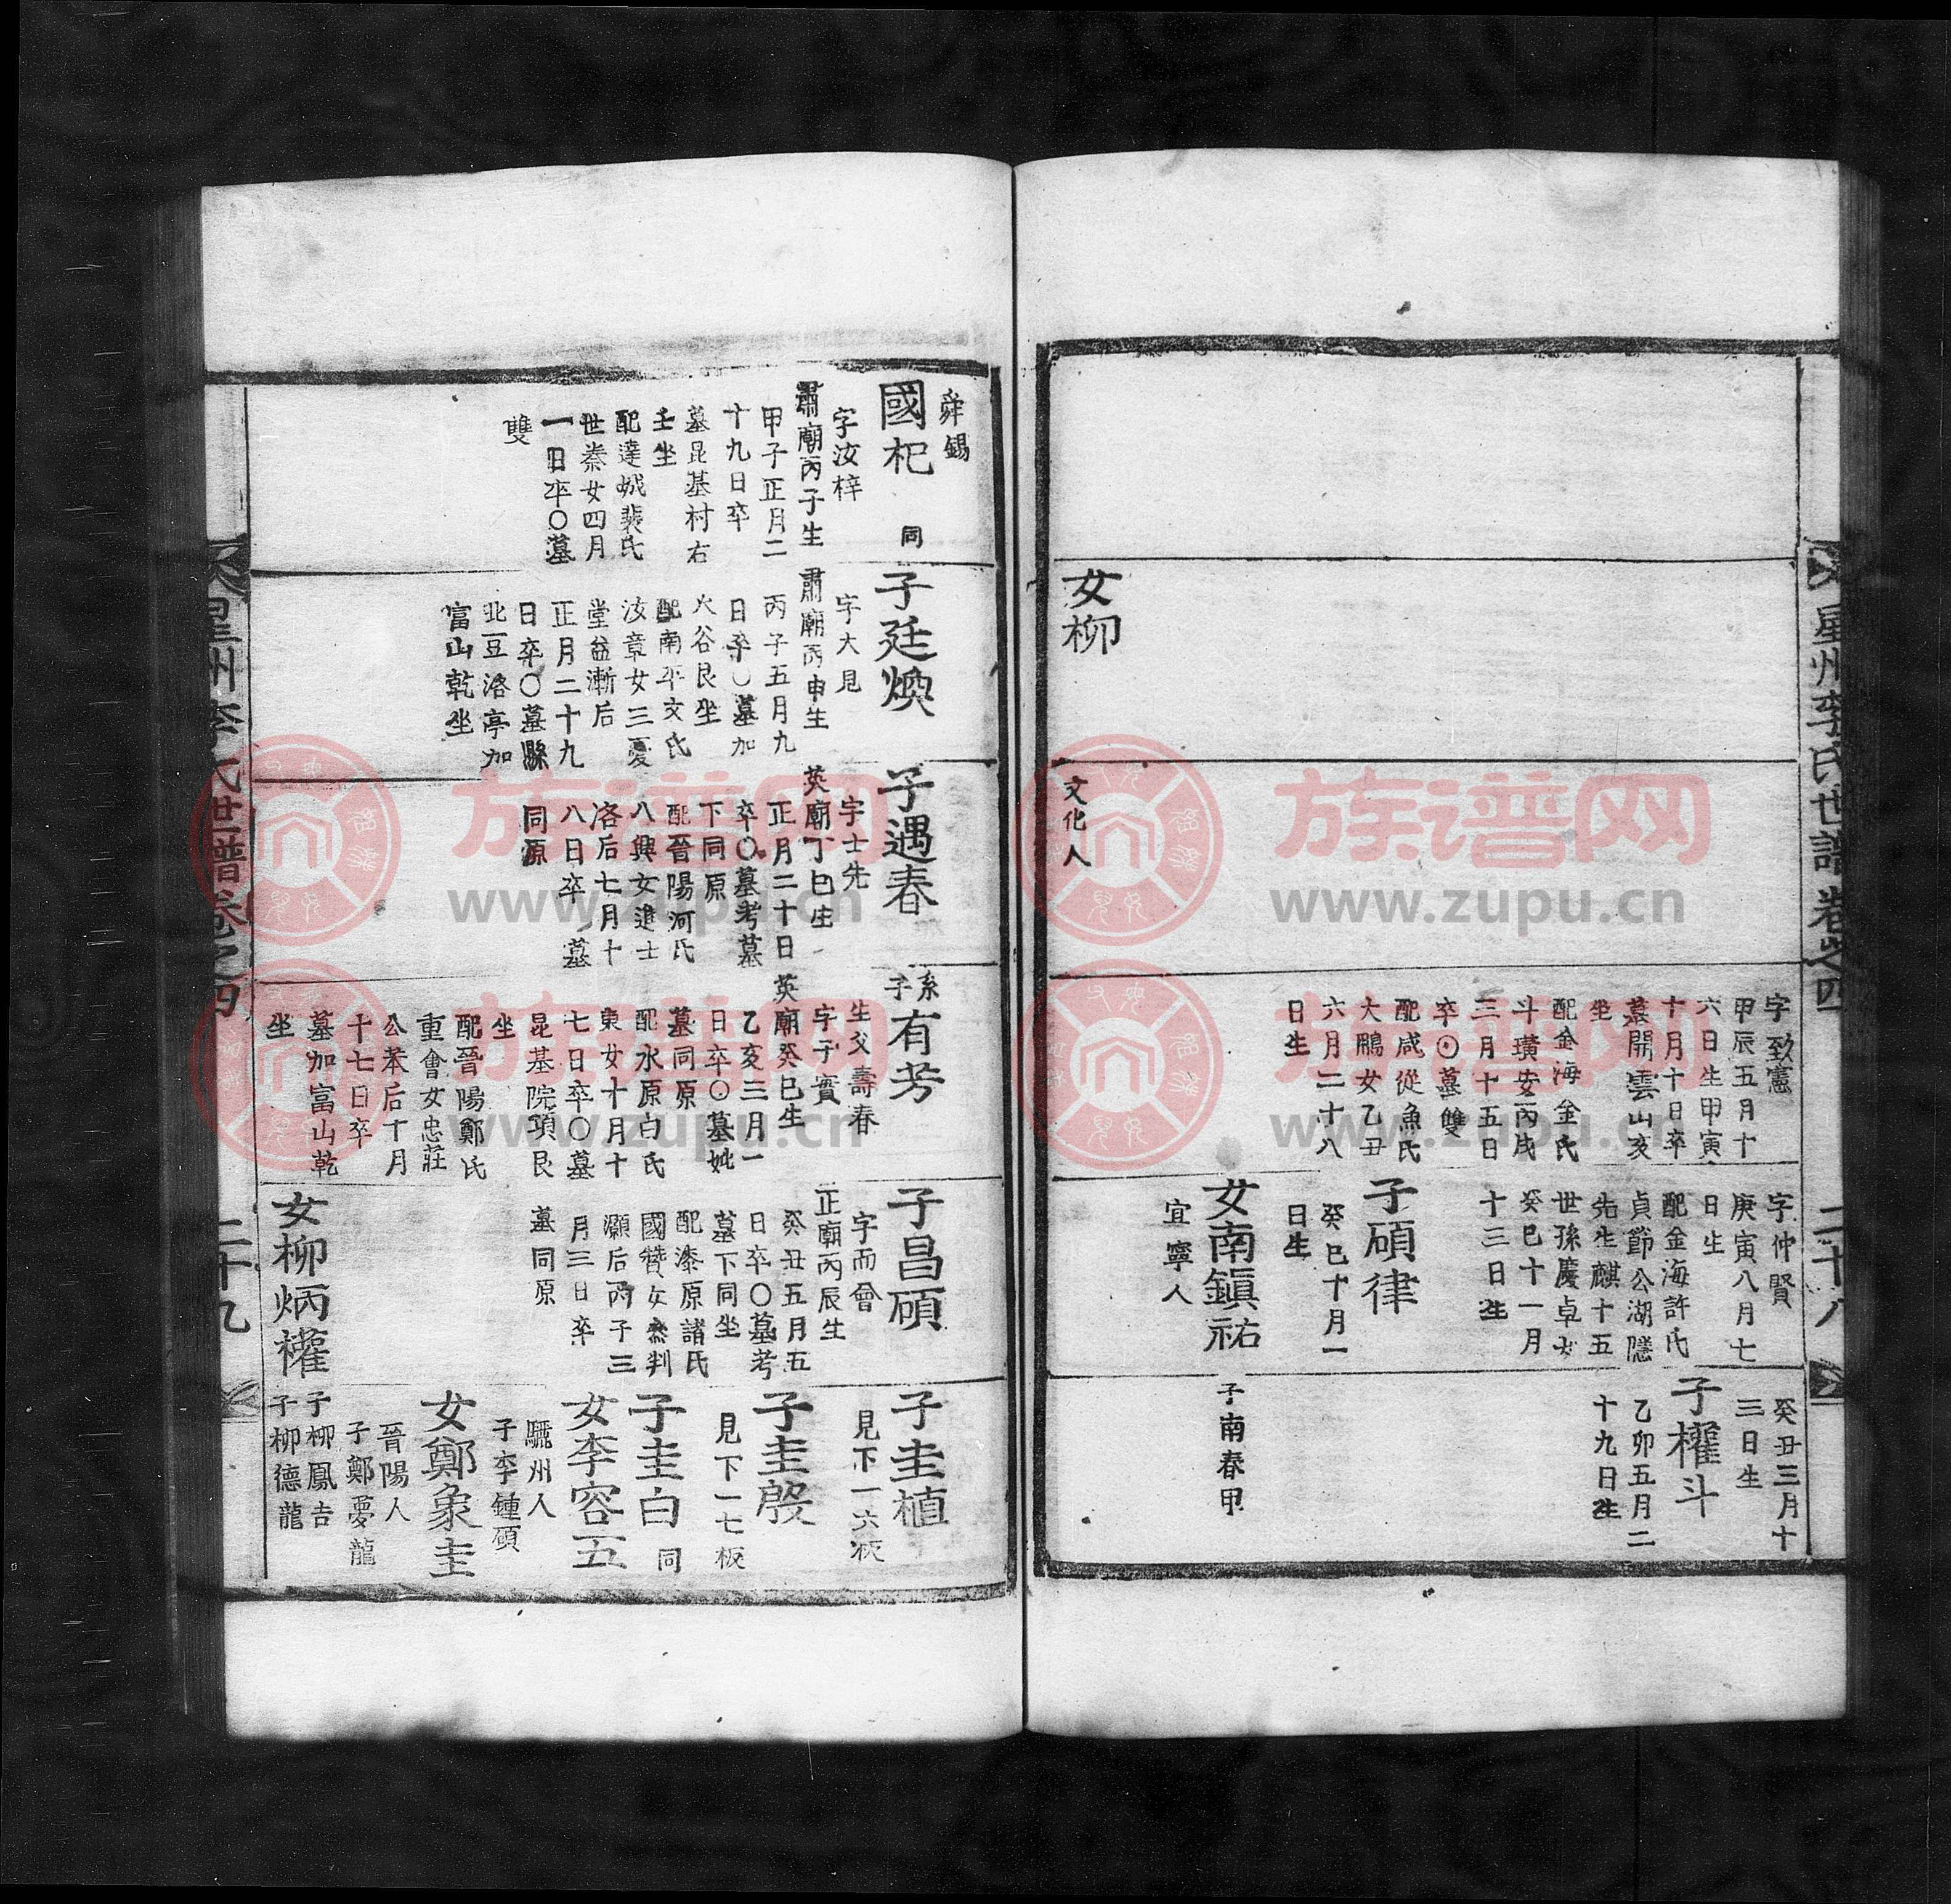 星州李氏世譜卷之四
二十八
女柳
文化人
字致憲
甲辰五月十
六日生甲寅
十月十日卒
墓開雲山亥
坐
配金海金氏
斗璜女丙戌
三月十五日
卒〇墓雙
配咸從魚氏
大鵬女乙丑
六月二十八
日生
字仲賢
庚寅八月七
日生
配金海許氏
貞節公湖隱
先生麒十五
世孫慶卓女
癸巳十一月
十三日生
子碩律
癸巳十月一
日生
女南鎭祐
宜寧人
癸丑三月十
三日生
子權斗
乙卯五月二
十九日生
子南春甲
舜錫
國杞 同
字汝梓
肅廟丙子生
甲子正月二
十九日卒
墓昆基村右
壬坐
配達城裴氏
世綦女四月
一日卒〇墓
雙
子廷煥
字大見
肅廟丙申生
丙子五月九
日卒〇墓加
火谷艮坐
配南平文氏
汝章女三憂
堂益漸后
正月二十九
日卒〇墓縣
北豆洛亭加
富山乾坐
子遇春
字士先
英廟丁巳生
正月二十日
卒〇墓考墓
下同原
配晉陽河氏
八興女進士
洛后七月十
八日卒 墓
同原
系子有芳
生父壽春
字子實
英廟癸巳生
乙亥三月一
日卒〇墓妣
墓同原
配水原白氏
東女十月十
七日卒〇墓
昆基院項艮
坐
配晉陽鄭氏
重會女忠莊
公苯后十月
十七日卒
墓加富山乾
坐
子昌碩
字而會
正廟丙辰生
癸丑五月五
日卒〇墓考
墓下同坐
配漆原諸氏
國贊女參判
灝后丙子三
月三日卒
墓同原
女柳炳權
子圭植
見下一六板
子圭殷
見下一七板
子圭白 同
女李容五
驪州人
子李鍾碩
女鄭象圭
晉陽人
子鄭夢龍
子柳鳳吉
子柳德龍
星州李氏世譜卷之四
二十九
族谱网
www.zupu.cn
族谱网
www.zupu.cn
族谱网
www.zupu.cn
族谱网
www.zupu.cn